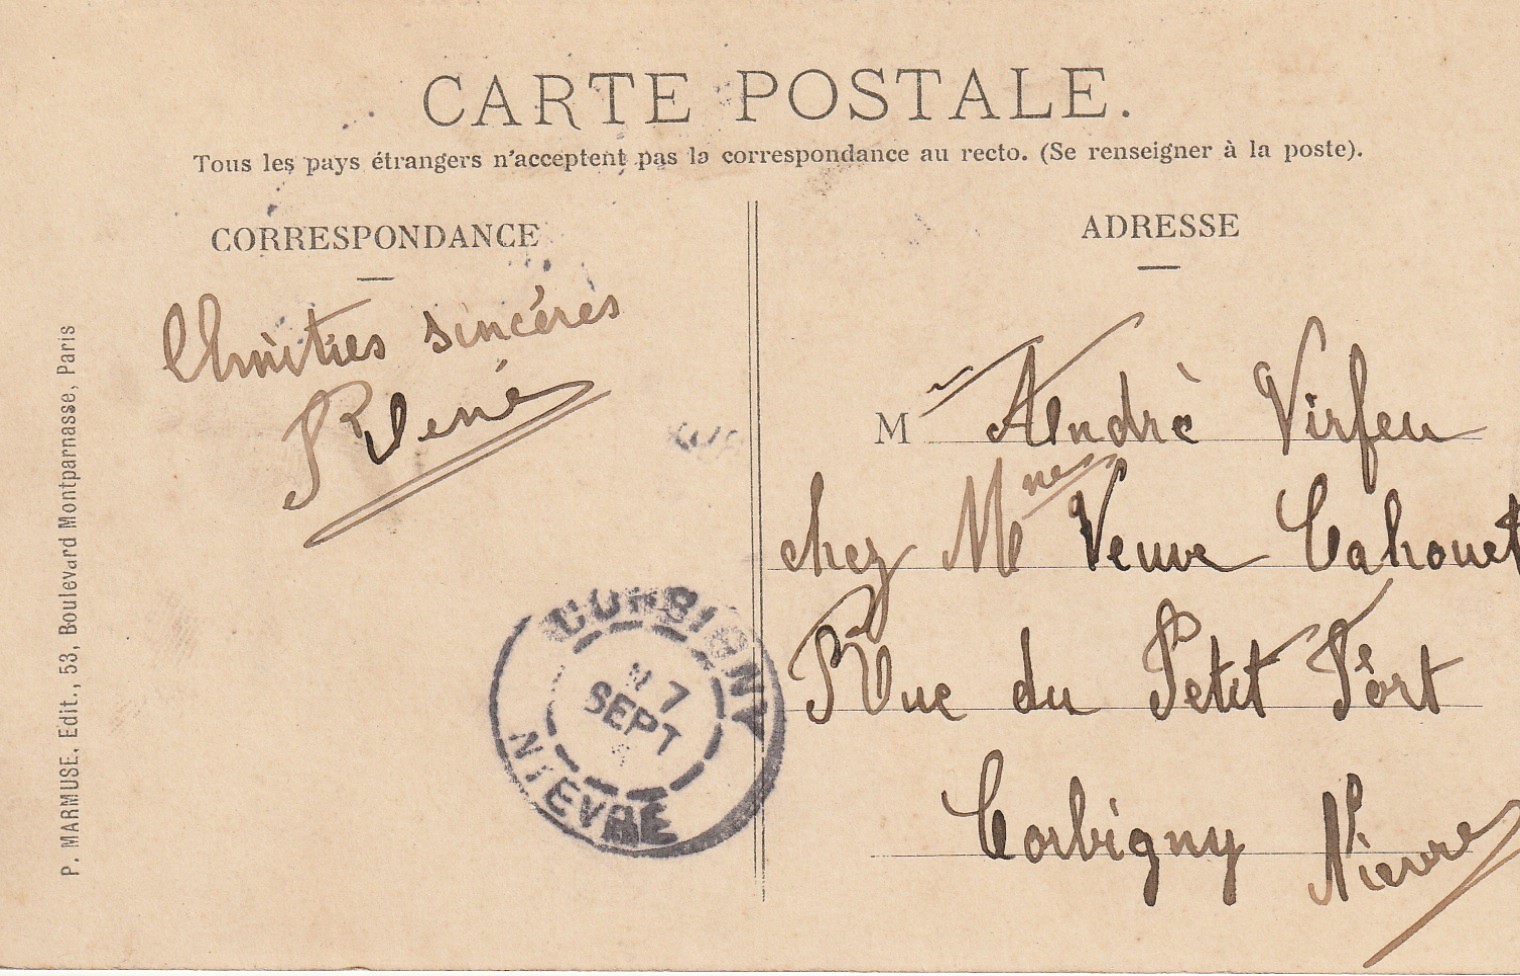 CARTE POSTALE.
Tous les pays étrangers n'acceptent pas la correspondance au recto. (Se renseigner à la poste).
CORRESPONDANCE
Amitiés sincéres
René
P. MARMUSE. Edit., 53, Boulevard Montparnasse, Paris
CORBIGNY
7
SEPT
NIEVRE
ADRESSE
M André Virfeu
chez Mme Veuve Cahouet
Rue du Petit Fort
Corbigny Nievre